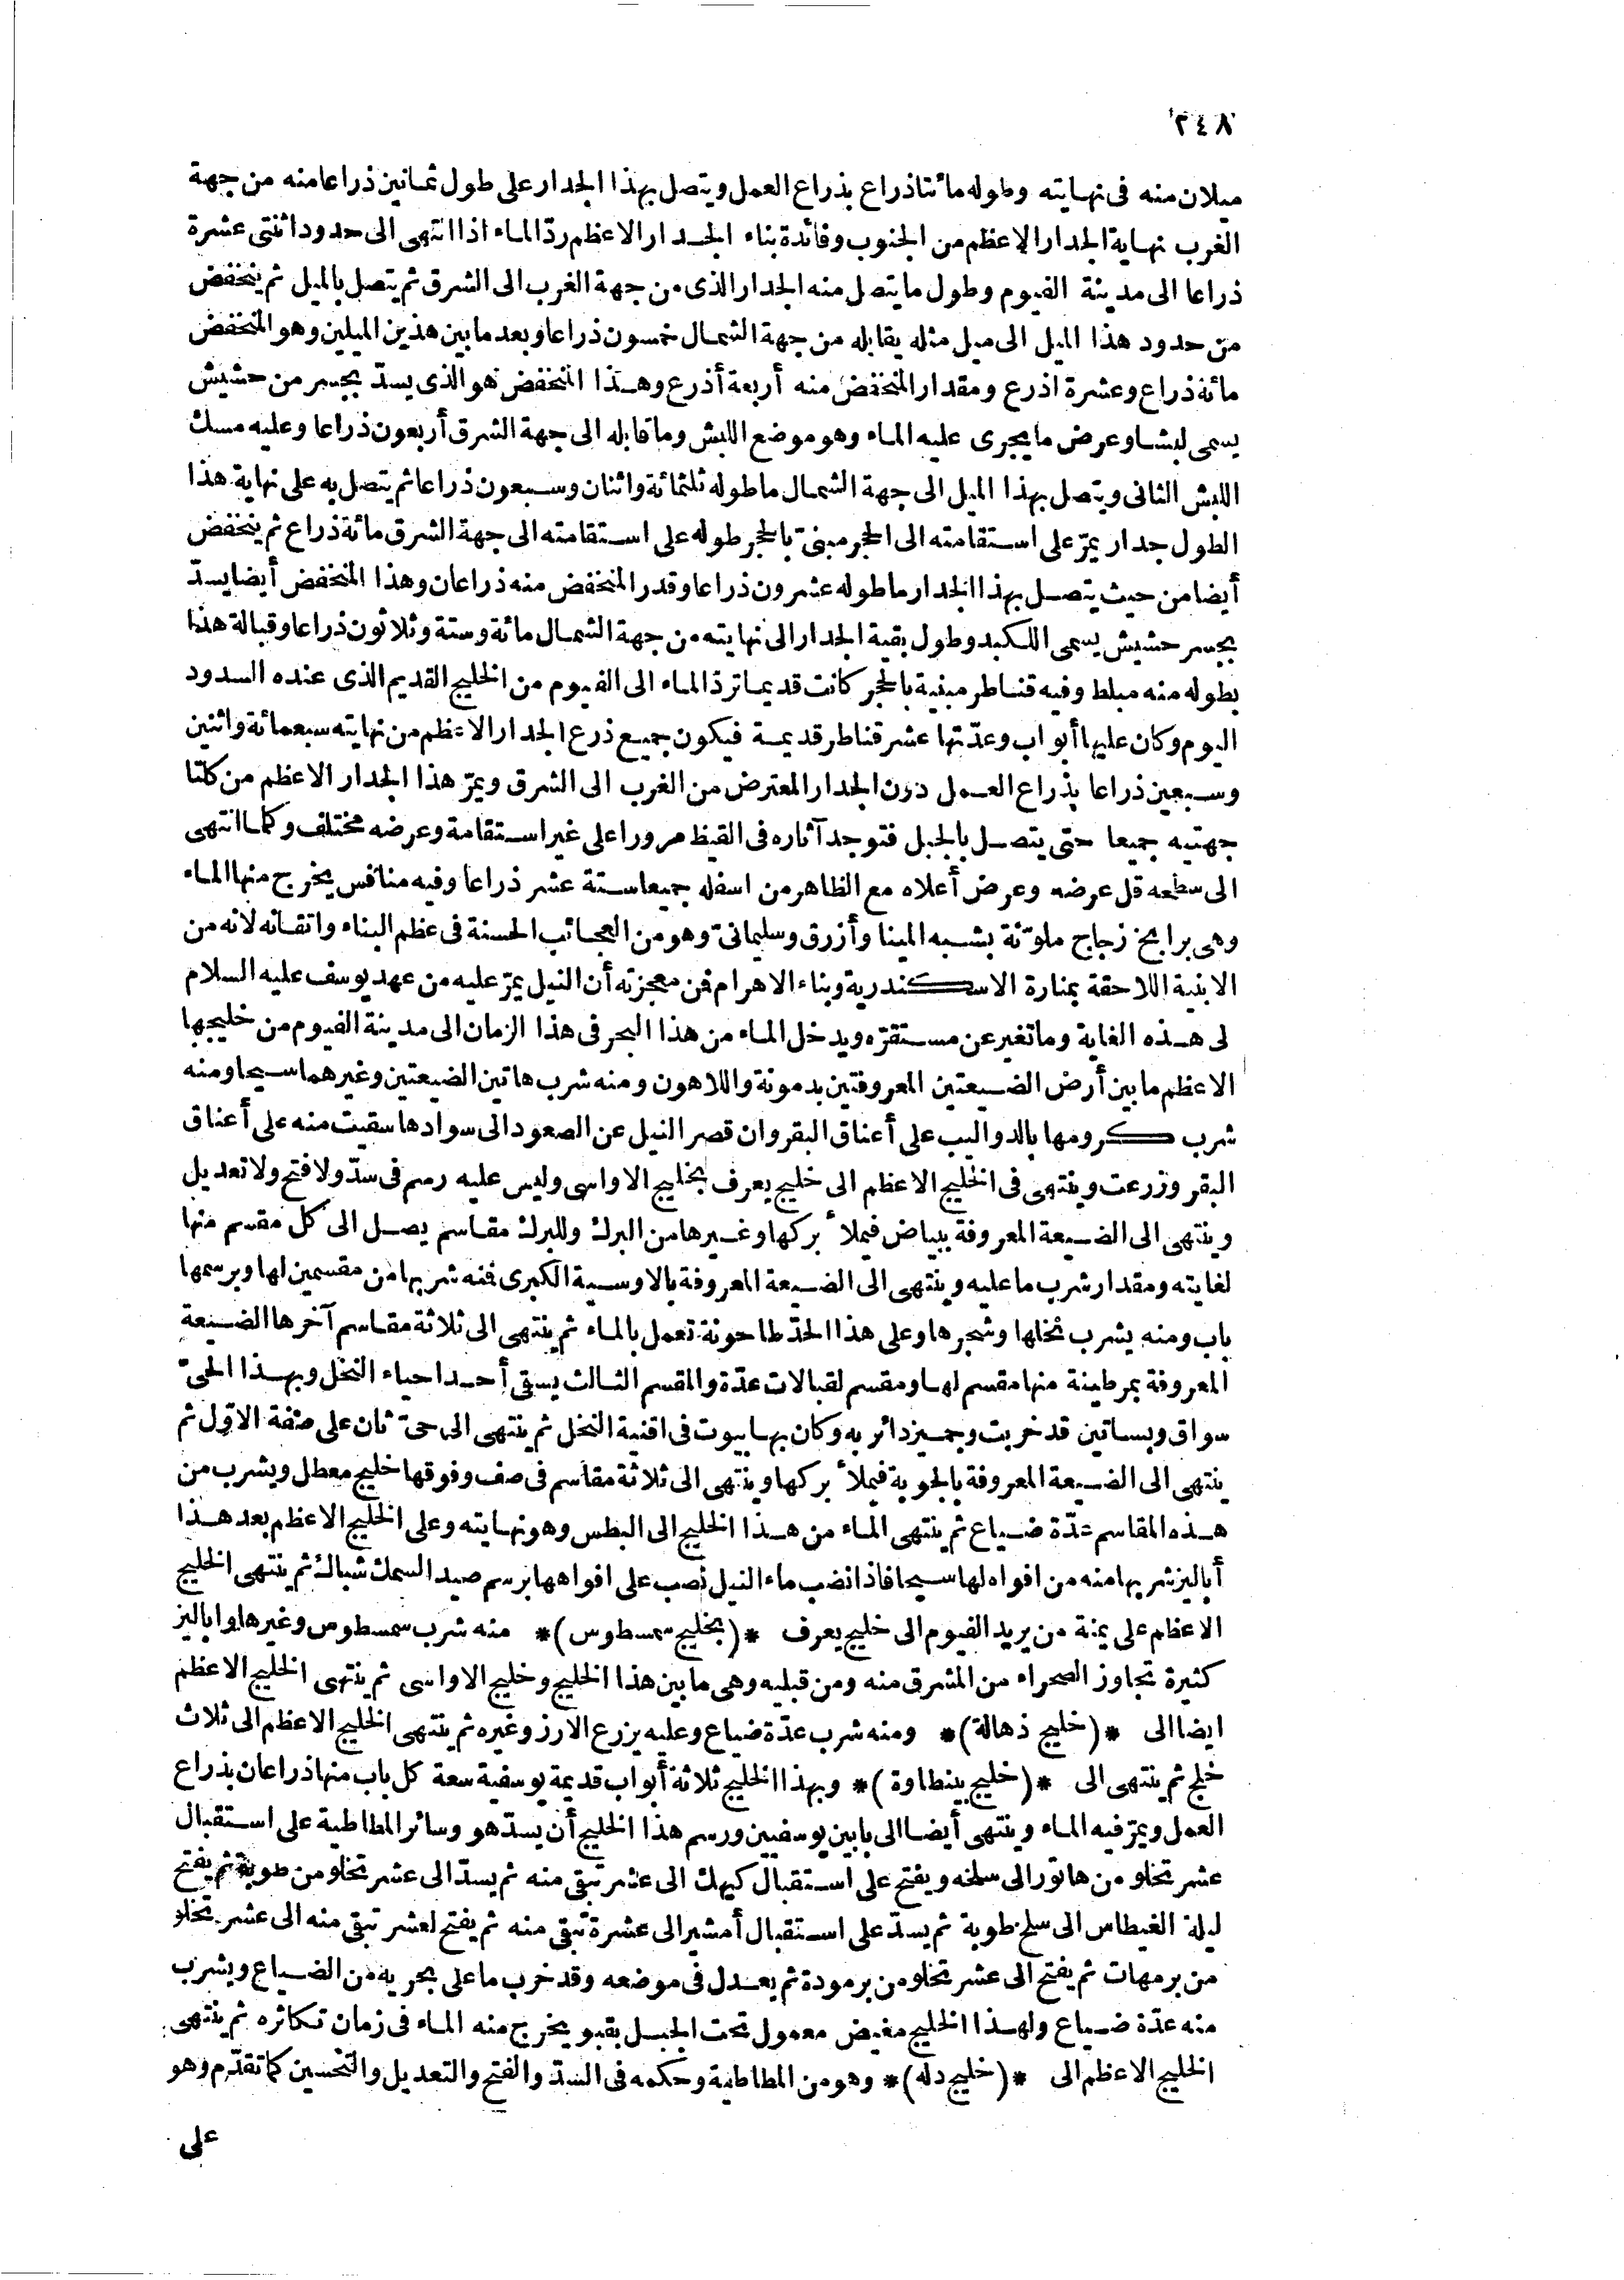 ٢٤٨
ميلان منه فى نهايته وطوله مائتا ذراع بذراع العمل ويتصل بهذا الجدار على طول ثمانين ذراعا منه من جهة
الغرب نهاية الجدار الاعظم من الجنوب وفائدة بناء الجدار الاعظم ردّ الماء اذا انتهى الى حدود اثنتى عشرة
ذراعا الى مدينة الفيوم وطول ما يتصل منه الجدار الذى من جهة الغرب الى الشرق ثم يتصل بالميل ثم ينخفض
من حدود هذا الميل الى ميل مثله يقابله من جهة الشمال خمسون ذراعا وبعد ما بين هذين الميلين وهو المنخفض
مائة ذراع وعشرة اذرع ومقدار المنخفض منه أربعة أذرع وهذا المنخفض هو الذى يسدّ بجسر من حشيش
يسمى لبشا وعرض ما يجرى عليه الماء وهو موضع اللبش وما قابله الى جهة الشرق أربعون ذراعا وعليه مسك
اللبش الثانى ويتصل بهذا الميل الى جهة الشمال ما طوله ثلثمائة واثنان وسبعون ذراعا ثم يتصل به على نهاية هذا
الطول جدار يمرّ على استقامته الى الحجر مبنىّ بالحجر طوله على استقامته الى جهة الشرق مائة ذراع ثم ينخفض
أيضا من حيث يتصل بهذا الجدار ما طوله عشرون ذراعا وقدر المنخفض منه ذراعان وهذا المنخفض أيضا يسدّ
بجسر حشيش يسمى اللكبد وطول بقية الجدار الى نهايته من جهة الشمال مائة وستة وثلاثون ذراعا وقبالة هذا
بطوله منه مبلط وفيه قناطر مبنية بالحجر كانت قديما تردّ الماء الى الفيوم من الخليج القديم الذى عنده السدود
اليوم وكان عليها أبواب وعدّتها عشر قناطر قديمة فيكون جميع ذرع الجدار الاعظم من نهايته سبعمائة واثنين
وسبعين ذراعا بذراع العمل دون الجدار المعترض من الغرب الى الشرق ويمرّ هذا الجدار الاعظم من كلتا
جهتيه جميعا حتى يتصل بالجبل فتوجد آثاره فى القيظ مرورا على غير استقامة وعرضه مختلف وكلما انتهى
الى سطحه قل عرضه وعرض أعلاه مع الظاهر من اسفله جميعا ستة عشر ذراعا وفيه منافس يخرج منها الماء
وهى برابخ زجاج ملوّنة بشبه المينا وأزرق وسليمانىّ وهو من العجائب الحسنة فى عظم البناء واتقانه لانه من
الابنية اللاحقة بمنارة الاسكندرية وبناء الاهرام فمن معجزته أن النيل يمرّ عليه من عهد يوسف عليه السلام
لى هذه الغاية وما تغير عن مستقرّه ويدخل الماء من هذا البحر فى هذا الزمان الى مدينة الفيوم من خليجها
الاعظم ما بين أرض الضيعتين المعروفتين بدمونة واللاهون ومنه شرب هاتين الضيعتين وغيرهما سيحا ومنه
شرب كرومها بالدواليب على أعناق البقر وان قصر النيل عن الصعود الى سوادها سقيت منه على أعناق
البقر وزرعت وينتهى فى الخليج الاعظم الى خليج يعرف بخليج الاواسى وليس عليه رسم فى سدّ ولا فتح ولا تعديل
وينتهى الى الضيعة المعروفة ببياض فيملأ بركها وغيرها من البرك وللبرك مقاسم يصل الى كل مقسم منها
لغايته ومقدار شرب ما عليه وينتهى الى الضيعة المعروفة بالاوسية الكبرى فمنه شربها من مقسمين لها وبرسمها
باب ومنه يشرب نخلها وشجرها وعلى هذا الحدّ طاحونة تعمل بالماء ثم ينتهى الى ثلاثة مقاسم آخرها الضيعة
المعروفة بمرطينة منها مقسم لها ومقسم لقبالات عدّة والمقسم الثالث يسقى أحد احياء النخل وبهذا الحىّ
سواق وبساتين قد خربت وجميز دائر به وكان بها بيوت فى اقنية النخل ثم ينتهى الى حىّ ثان على صفة الاوّل ثم
ينتهى الى الضيعة المعروفة بالجوبة فيملأ بركها وينتهى الى ثلاثة مقاسم فى صف وفوقها خليج معطل ويشرب من
هذه المقاسم عدّة ضياع ثم ينتهى الماء من هذا الخليج الى البطس وهو نهايته وعلى الخليج الاعظم بعد هذا
أباليز شربها منه من افواه لها سيحا فاذا نضب ماء النيل نصب على افواهها برسم صيد السمك شباك ثم ينتهى الخليج
الاعظم على يمنة من يريد الفيوم الى خليج يعرف *(بخليج سمسطوس)* منه شرب سمسطوس وغيرها واباليز
كثيرة تجاوز الصحراء من المشرق منه ومن قبليه وهى ما بين هذا الخليج وخليج الاواسى ثم ينتهى الخليج الاعظم
ايضا الى *(خليج ذهالة)* ومنه شرب عدّة ضياع وعليه يزرع الارز وغيره ثم ينتهى الخليج الاعظم الى ثلاث
خلج ثم ينتهى الى *(خليج بينطاوة)* وبهذا الخليج ثلاثة أبواب قديمة يوسفية سعة كل باب منها ذراعان بذراع
العمل ويمرّ فيه الماء وينتهى أيضا الى بابين يوسفيين ورسم هذا الخليج أن يسدّ هو وسائر المطاطية على استقبال
عشر تخلو من هاتور الى سلخه ويفتح على استقبال كيهك الى عشر تبقى منه ثم يسدّ الى عشر تخلو من طوبة ثم يفتح
ليلة الغيطاس الى سلخ طوبة ثم يسدّ على استقبال أمشير الى عشرة تبقى منه ثم يفتح لعشر تبقى منه الى عشر تخلو
من برمهات ثم يفتح الى عشر تخلو من برمودة ثم يعدل فى موضعه وقد خرب ما على بحريه من الضياع ويشرب
منه عدّة ضياع ولهذا الخليج مغيض معمول تحت الجبل بقبو يخرج منه الماء فى زمان تكاثره ثم ينتهى
الخليج الاعظم الى *(خليج دله)* وهو من المطاطية وحكمه فى السدّ والفتح والتعديل والتحسين كما تقدّم وهو
على